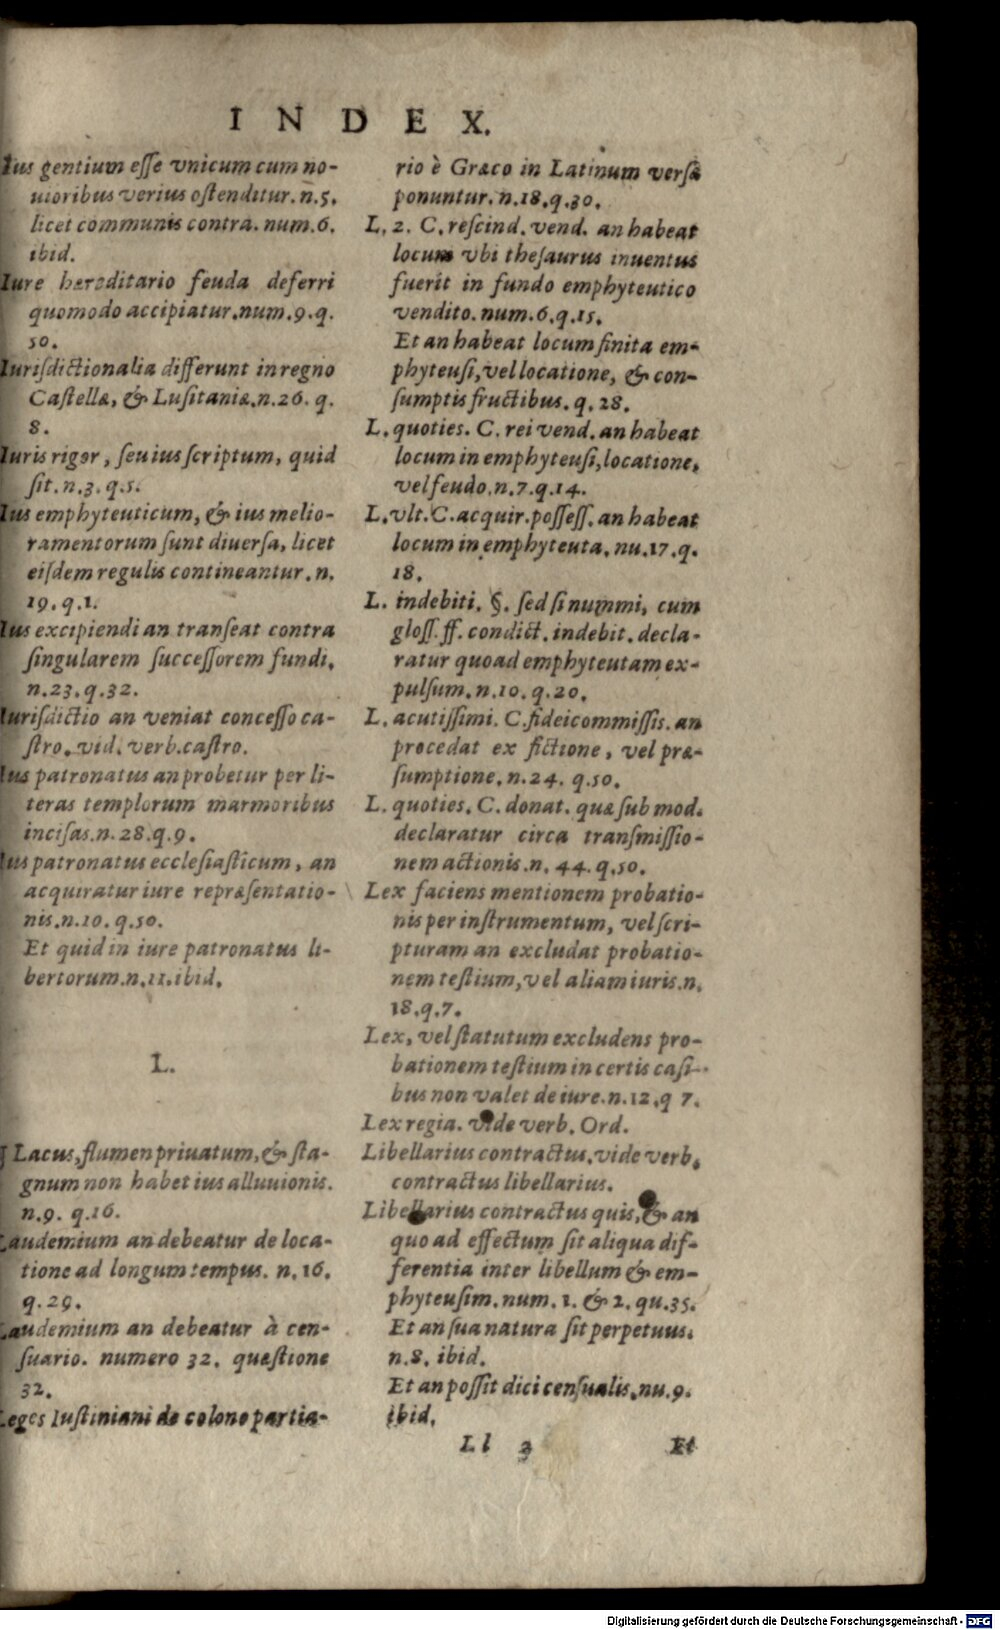 INDEX.
Ius gentium esse vnicum cum no-
uioribus verius ostenditur. n.5.
licet communis contra. num.6.
ibid.
Iure hereditario feuda deferri
quomodo accipiatur. num.9.q.
50.
Iurisdictionalia differunt in regno
Castellæ, & Lusitaniæ. n.26. q.
8.
Iuris rigor, seu ius scriptum, quid
sit. n.3. q.5.
Ius emphyteuticum, & ius melio-
ramentorum sunt diuersa, licet
eisdem regulis contineantur. n.
19. q.1.
Ius excipiendi an transeat contra
singularem successorem fundi.
n.23. q.32.
Iurisdictio an veniat concesso ca-
stro. vid. verb. castro.
Ius patronatus an probetur per li-
teras templorum marmoribus
incisas. n.28.q.9.
Ius patronatus ecclesiasticum, an
acquiratur iure repræsentatio-
nis. n.10. q.50.
Et quid in iure patronatus li-
bertorum. n.11. ibid.
L.
Lacus, flumen priuatum, & sta-
gnum non habet ius alluuionis.
n.9. q.16.
Laudemium an debeatur de loca-
tione ad longum tempus. n.16.
q.29.
Laudemium an debeatur à cen-
suario. numero 32. quæstione
32.
Leges Iustiniani de colono partia-
rio è Græco in Latinum versæ
ponuntur. n.18.q.30.
L. 2. C. rescind. vend. an habeat
locum vbi thesaurus inuentus
fuerit in fundo emphyteutico
vendito. num.6. q.15.
Et an habeat locum finita em-
phyteusi, vel locatione, & con-
sumptis fructibus. q. 28.
L. quoties. C. rei vend. an habeat
locum in emphyteusi, locatione,
vel feudo. n.7.q.14.
L. vlt. C. acquir. possess. an habeat
locum in emphyteuta. nu.17. q.
18.
L. indebiti. §. sed si nummi, cum
gloss. ff. condict. indebit. decla-
ratur quoad emphyteutam ex-
pulsum. n.10. q.20.
L. acutissimi. C. fideicommissis. an
procedat ex fictione, vel præ-
sumptione. n.24. q.50.
L. quoties. C. donat. quæ sub mod.
declaratur circa transmissio-
nem actionis. n. 44. q.50.
Lex faciens mentionem probatio-
nis per instrumentum, vel scri-
pturam an excludat probatio-
nem testium, vel aliam iuris. n.
18.q.7.
Lex, vel statutum excludens pro-
bationem testium in certis casi-
bus non valet de iure. n.12.q 7.
Lex regia. vide verb. Ord.
Libellarius contractus. vide verb.
contractus libellarius.
Libellarius contractus quis, & an
quo ad effectum sit aliqua dif-
ferentia inter libellum & em-
phyteusim. num. 1. & 2. qu.35.
Et an sua natura sit perpetuus.
n.8. ibid.
Et an possit dici censualis. nu.9.
ibid.
Ll 3 Et
Digitalisierung gefördert durch die Deutsche Forschungsgemeinschaft - DFG